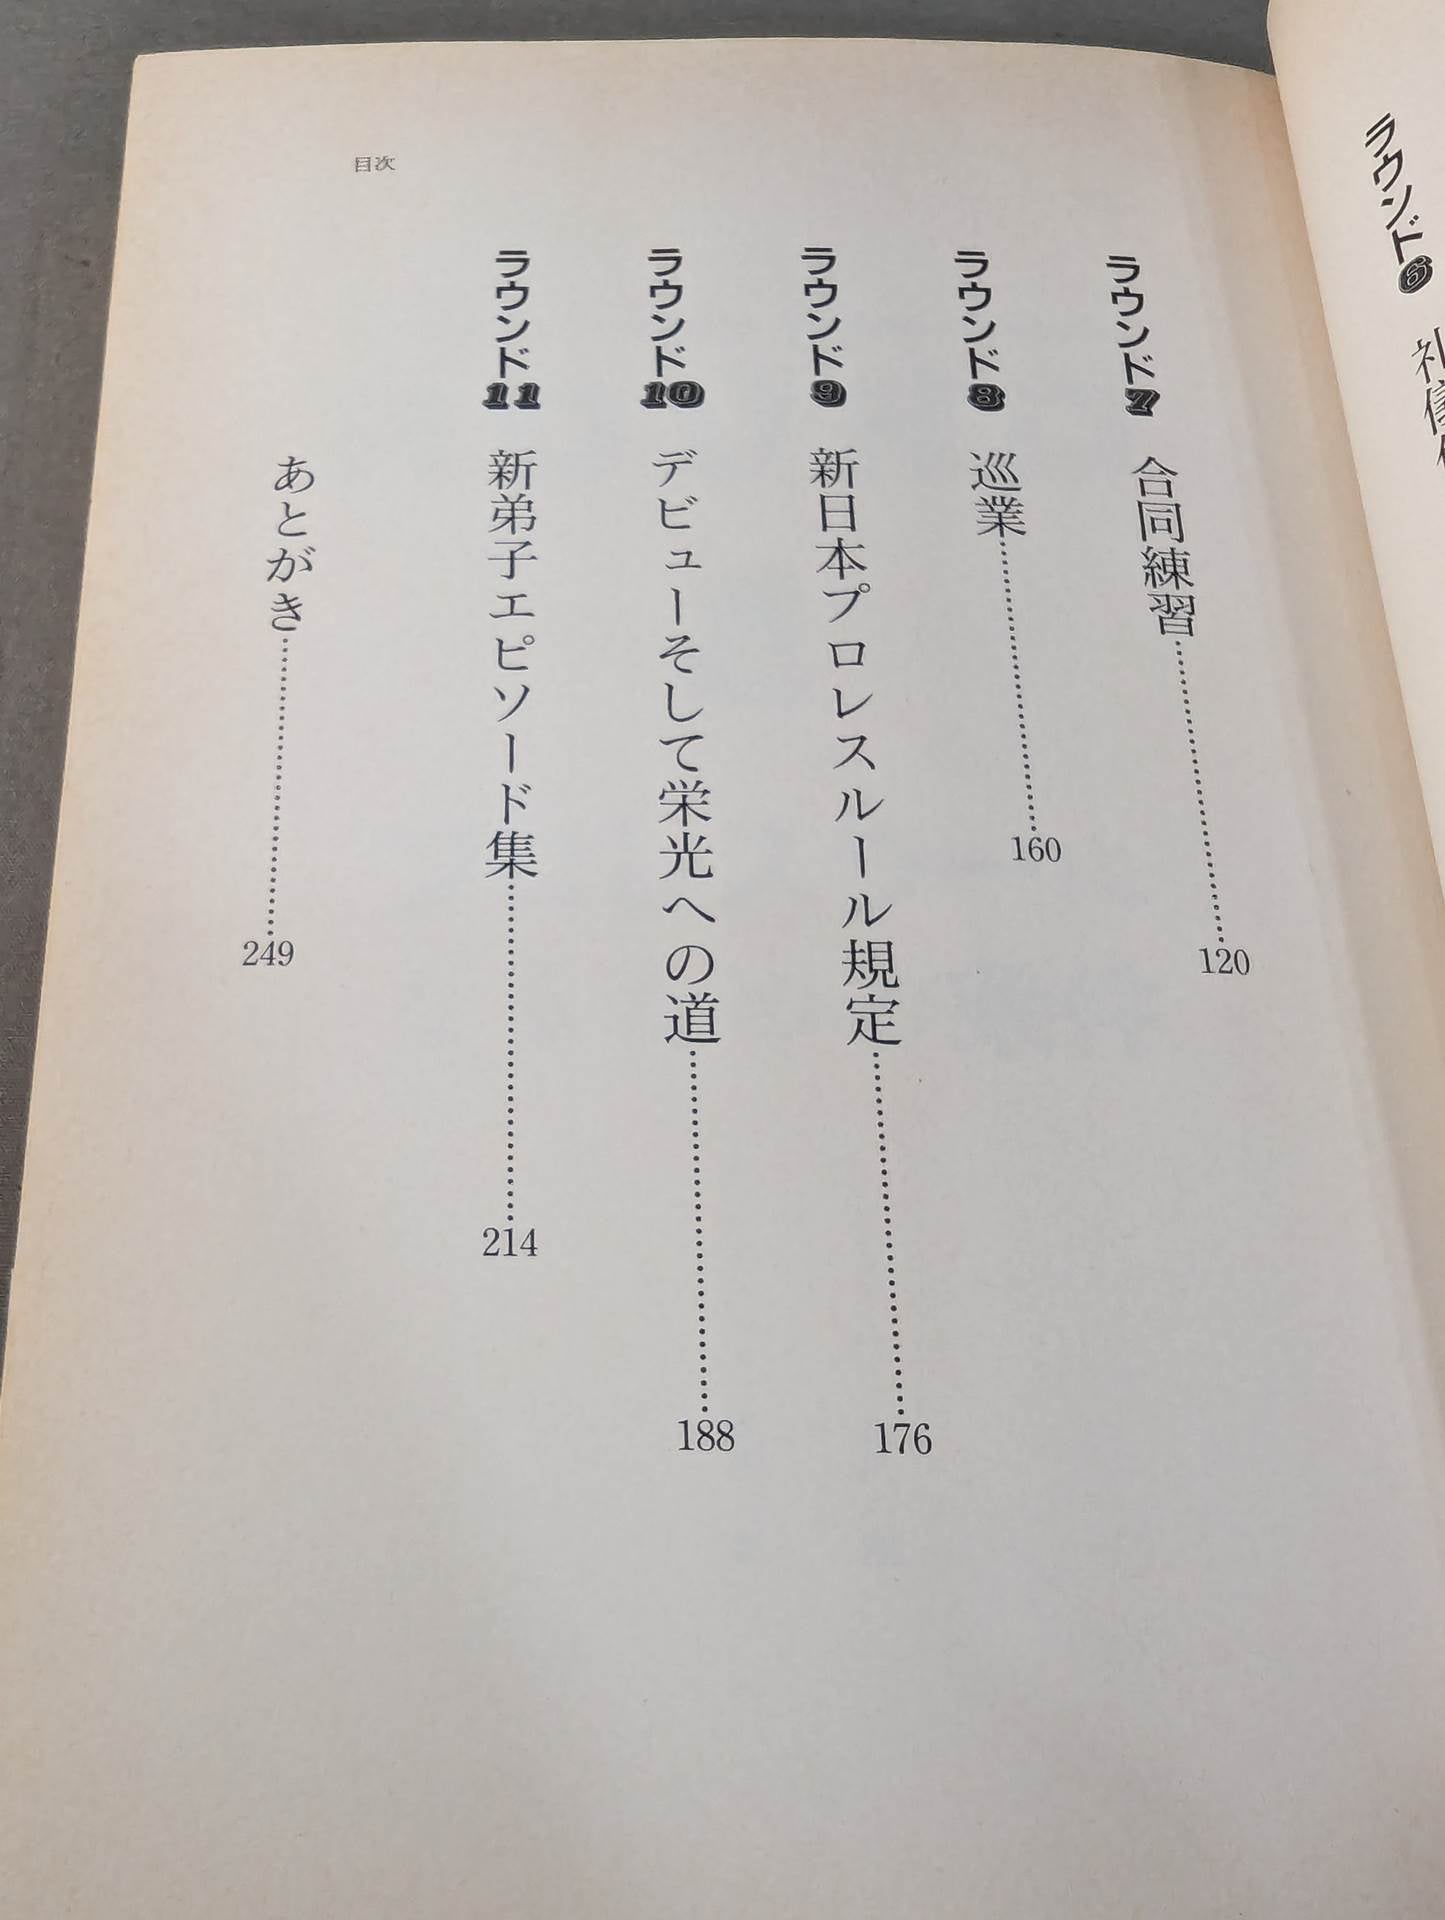 ラウンド6
目次
ラウンド7 合同練習 120
ラウンド8 巡業 160
ラウンド9 新日本プロレスルール規定 176
ラウンド10 デビューそして栄光への道 188
ラウンド11 新弟子エピソード集 214
あとがき 249